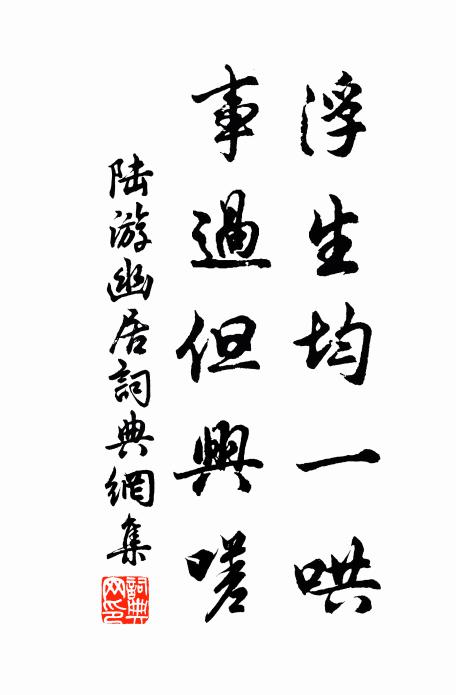 浮生均一哄
事過但興嗟
陸游幽居詞典網集
詞典網印